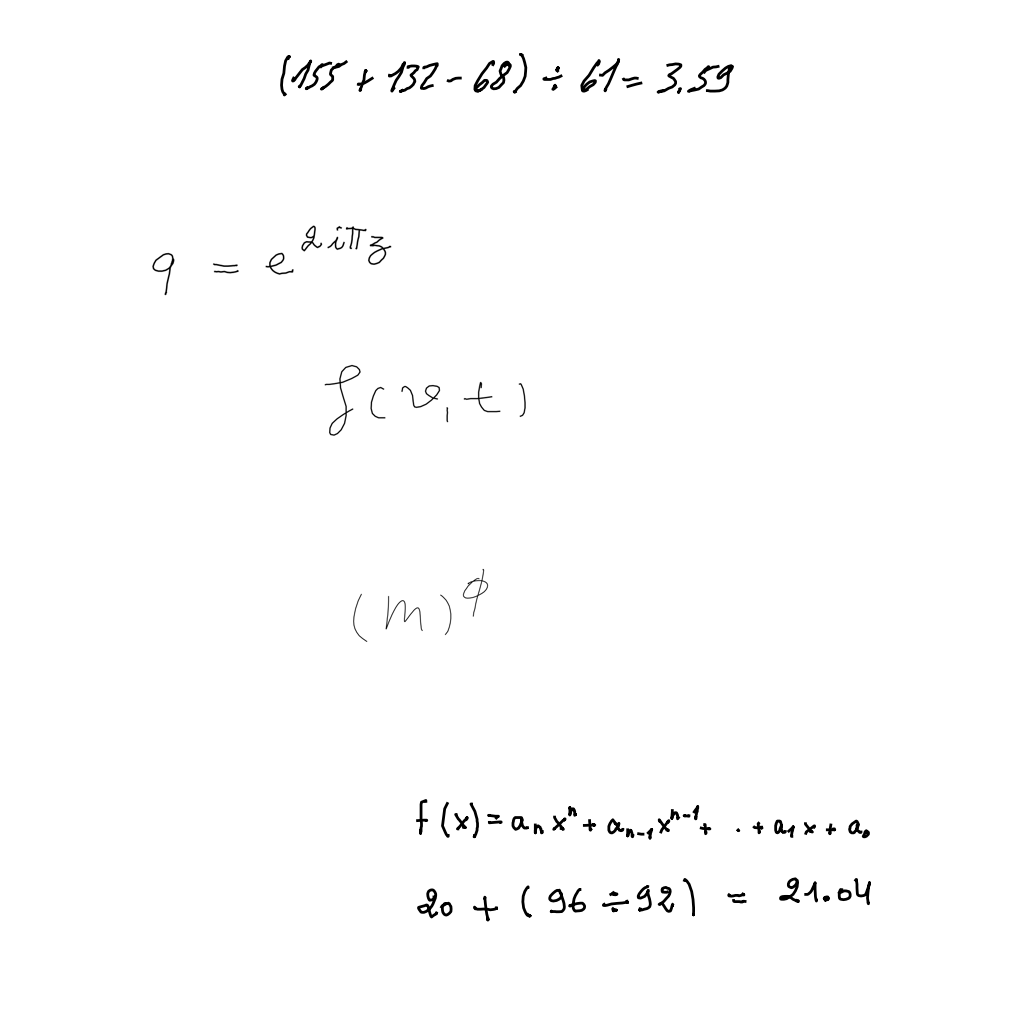 (155 + 132 - 68) ÷ 61 = 3.59
q = e^{2iπz}
f(v,t)
(m)^ϕ
f(x) = a_n x^n + a_{n-1} x^{n-1} + . . + a_1 x + a_0
20 + (96 ÷ 92) = 21.04